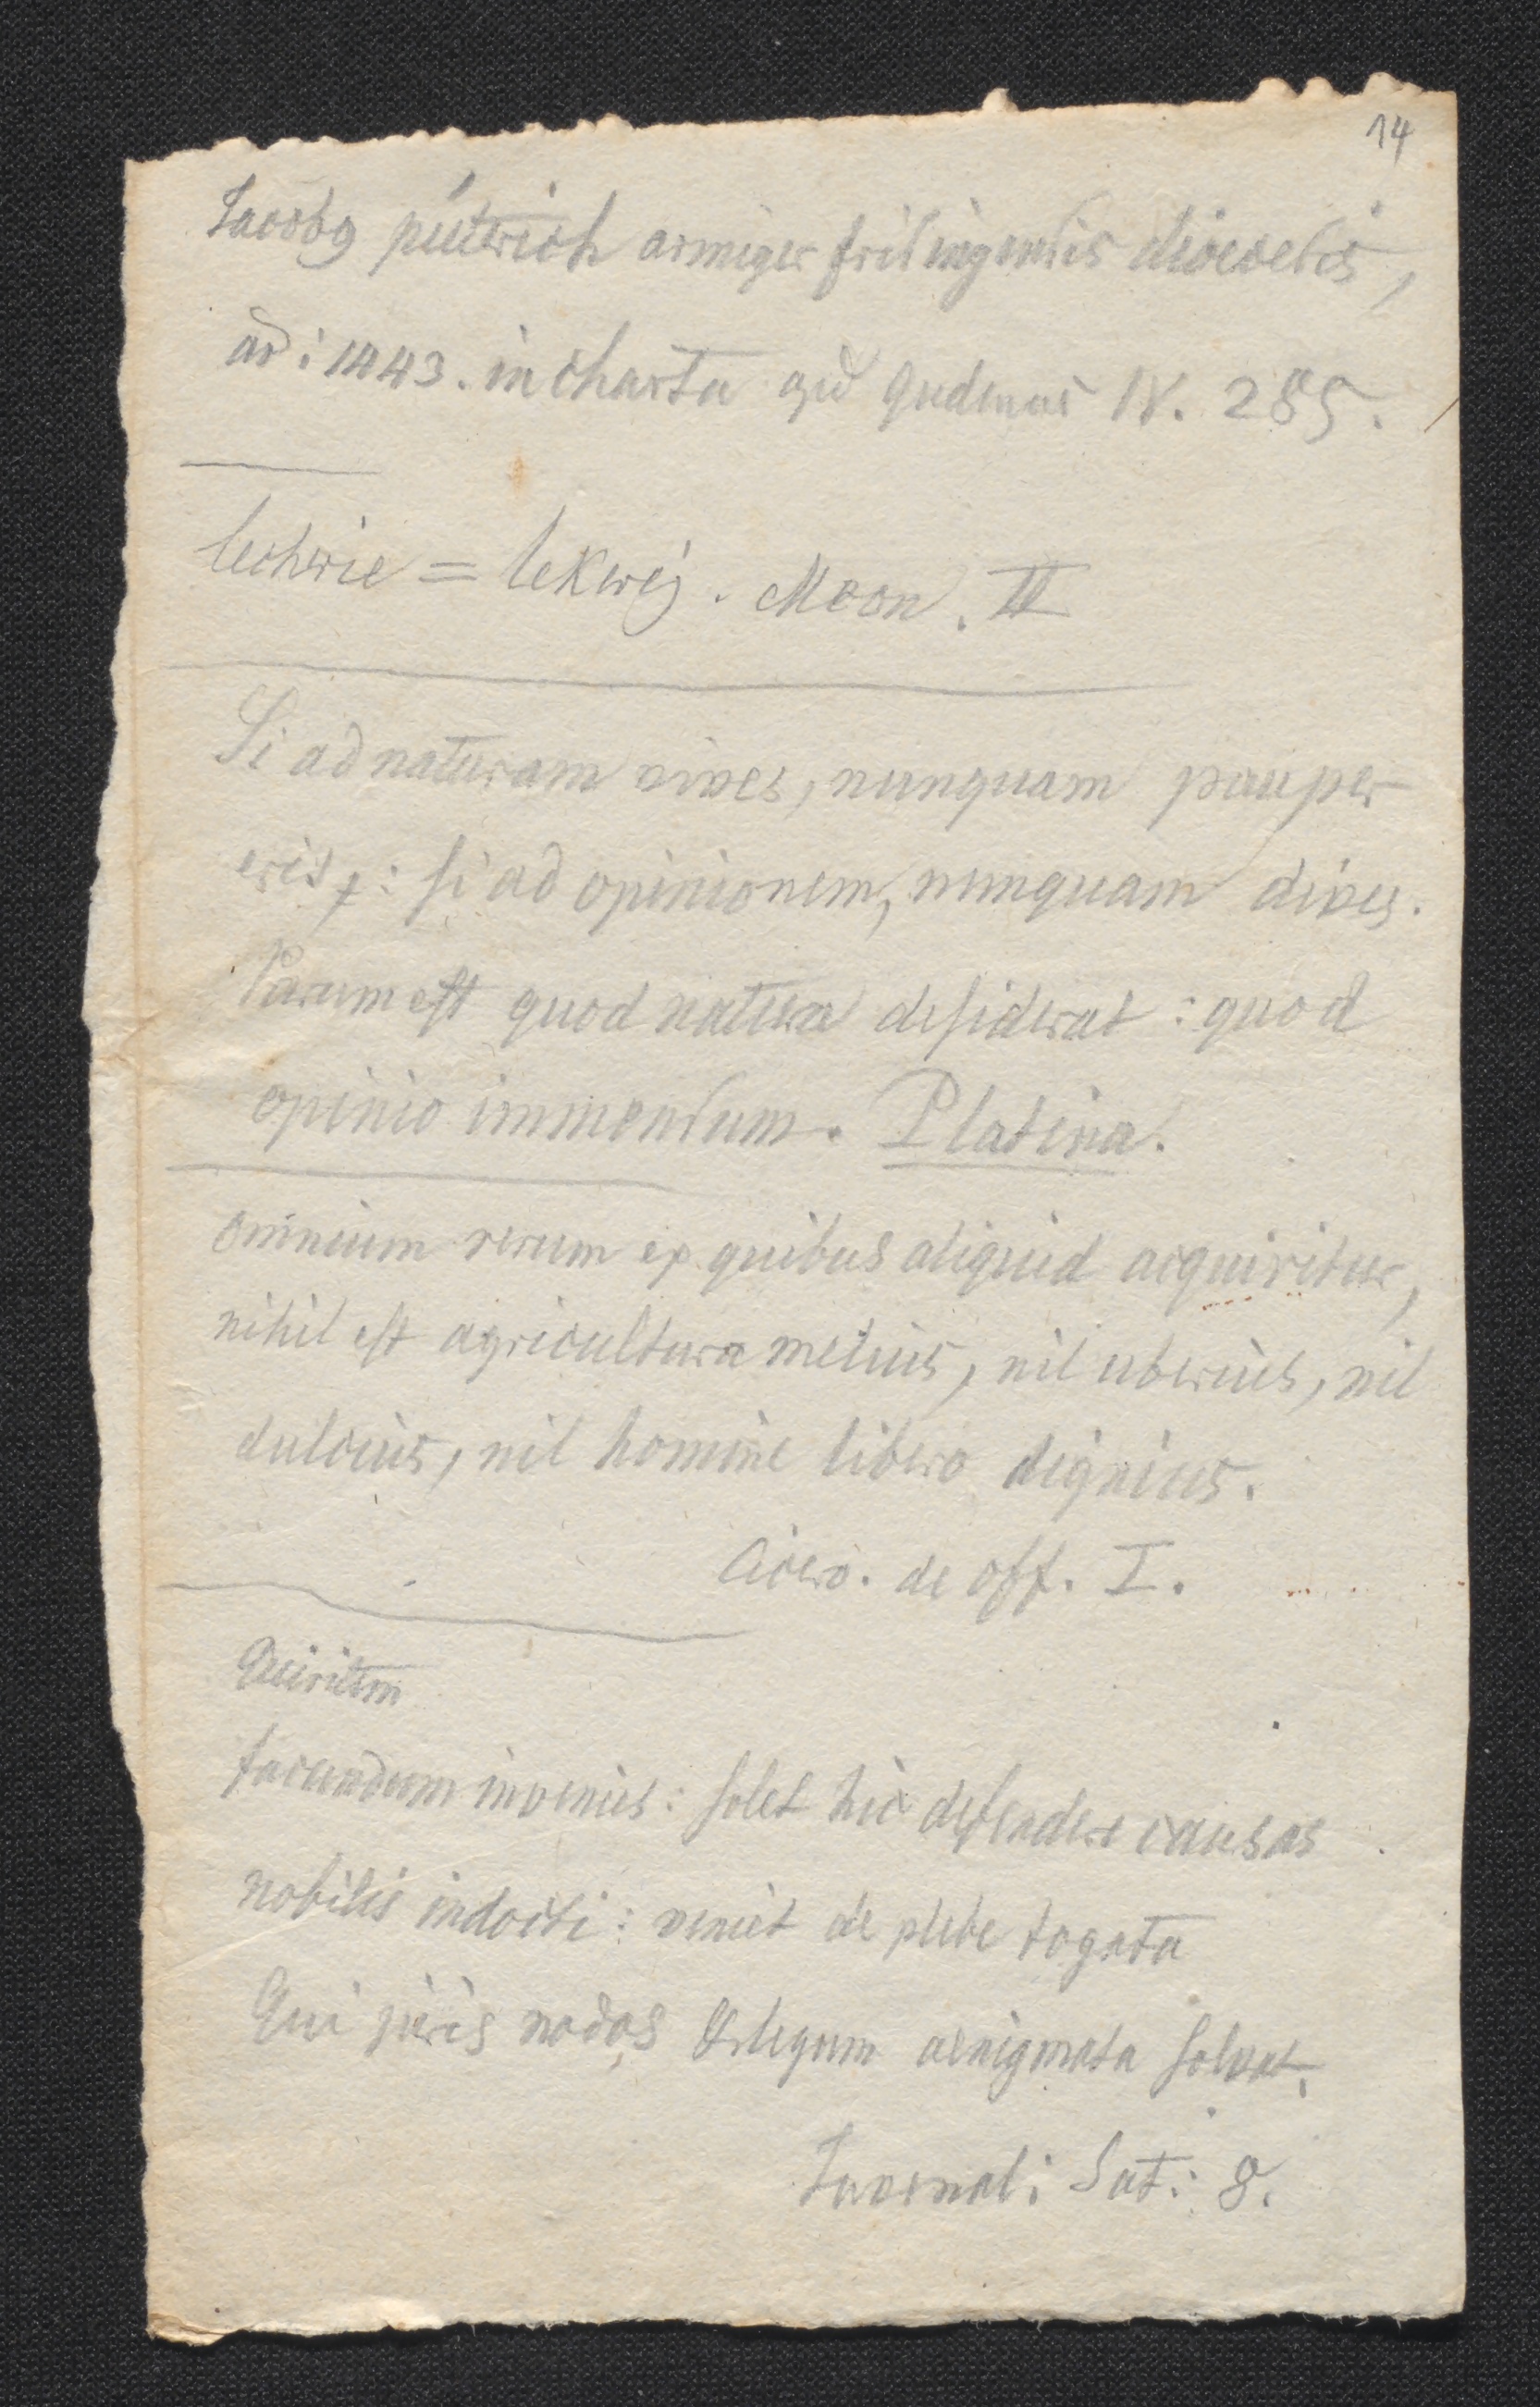 14
Jacobꝯ pûtrich armiger frisingensis diocesis,
ad: 1443. in charta apd Gudenus IV. 285.
lechrie = lekwej. Moon. II
Si ad naturam vives, nunquam pauper
eris: si ad opinionem, nunquam dives.
Parum est quod natura desiderat: quod
opinio immensum. Platina.
Omnium rerum ex quibus aliquid acquiritur,
nihil est agricultura melius, nil uberius, nil
dulcius, nil homine libero dignius.
Cicero. de off. I.
Quiritem
facundum invenies: solet hic defendere causas
nobilis indocti: veniet de plebe togata
Qui juris nodos & legum aenigmata solvat.
Juvenal: Sat: 8.